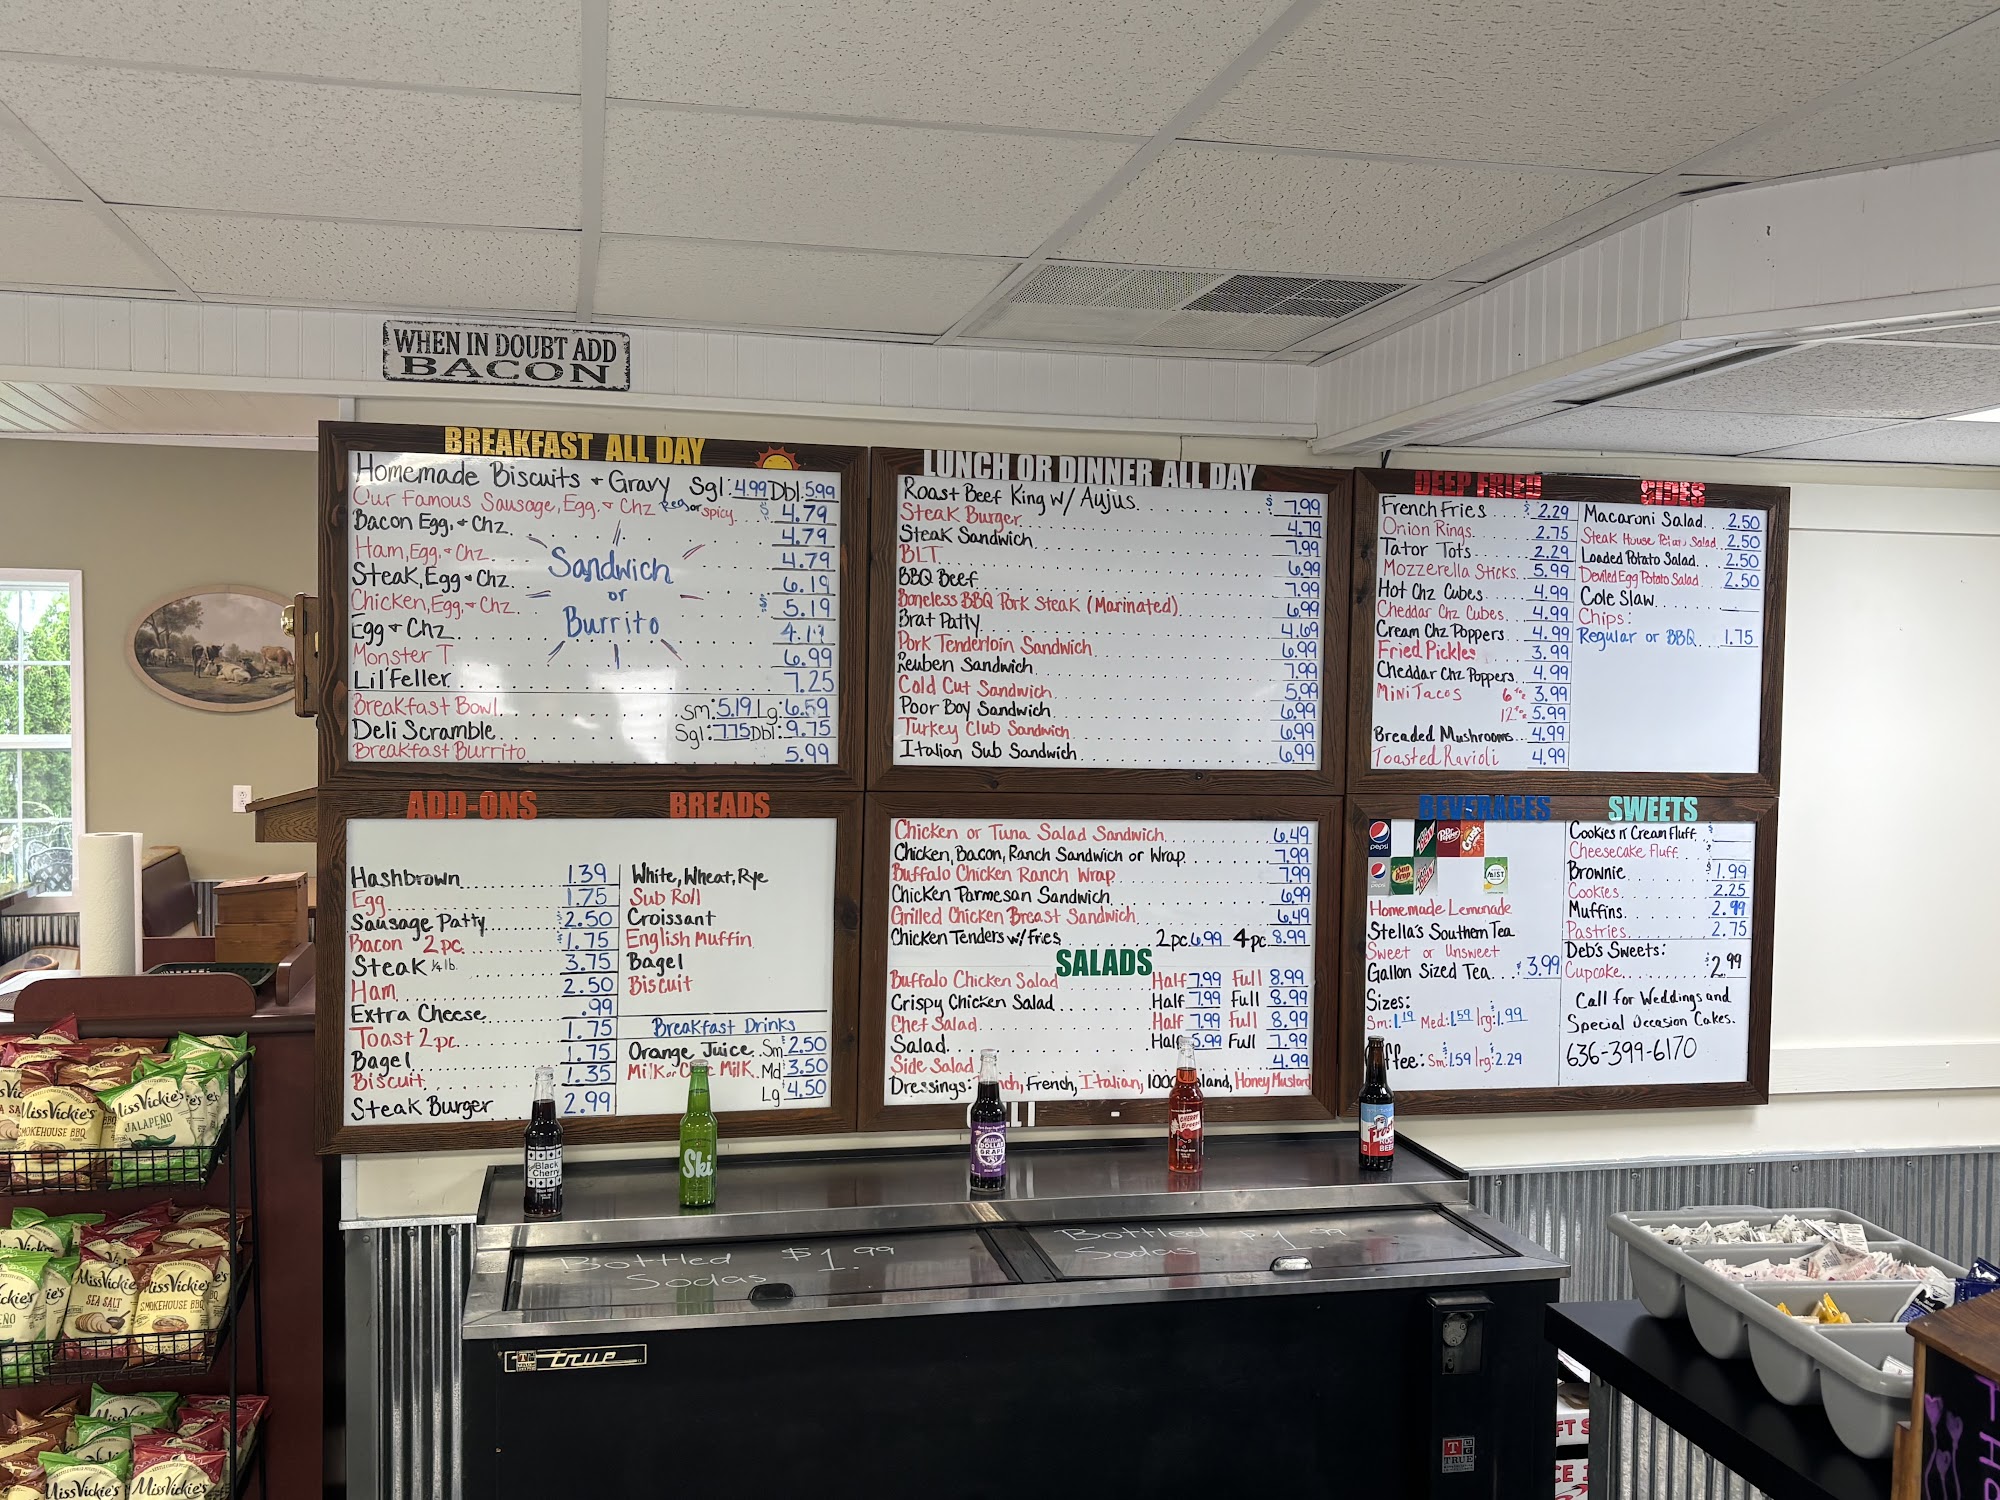 WHEN IN DOUBT ADD
BACON
BREAKFAST ALL DAY
Homemade Biscuits + Gravy Sgl: 4.99 Dbl: 5.99
Our Famous Sausage, Egg, + Chz Reg or Spicy $ 4.79
Bacon Egg, + Chz 4.79
Ham, Egg, + Chz 4.79
Steak, Egg + Chz 6.19
Chicken, Egg, + Chz $ 5.19
Egg + Chz
Monster T 6.99
Lil' Feller 7.25
Sandwich
or
Burrito
Breakfast Bowl Sm: 5.19 Lg: 6.59
Deli Scramble Sgl: 7.75 Dbl: 9.75
Breakfast Burrito 5.99
LUNCH OR DINNER ALL DAY
Roast Beef King w/ Aujus $ 7.99
Steak Burger 4.79
Steak Sandwich 7.99
BLT 6.99
BBQ Beef 7.99
Boneless BBQ Pork Steak (Marinated) 6.99
Brat Patty 4.69
Pork Tenderloin Sandwich 6.99
Reuben Sandwich 7.99
Cold Cut Sandwich 5.99
Poor Boy Sandwich 6.99
Turkey Club Sandwich 6.99
Italian Sub Sandwich 6.99
DEEP FRIED
French Fries $ 2.29
Onion Rings 2.75
Tator Tots 2.29
Mozzerella Sticks 5.99
Hot Chz Cubes 4.99
Cheddar Chz Cubes 4.99
Cream Chz Poppers 4.99
Fried Pickles 3.99
Cheddar Chz Poppers 4.99
Mini Tacos 6 3.99
12 5.99
Breaded Mushrooms 4.99
Toasted Ravioli 4.99
SIDES
Macaroni Salad 2.50
Steak House Potato Salad 2.50
Loaded Potato Salad 2.50
Deviled Egg Potato Salad 2.50
Cole Slaw
Chips:
Regular or BBQ 1.75
ADD-ONS
Hashbrown 1.39
Egg 1.75
Sausage Patty $ 2.50
Bacon 2 pc. $ 1.75
Steak 1/4 lb. 3.75
Ham 2.50
Extra Cheese .99
Toast 2 pc. 1.75
Bagel 1.75
Biscuit 1.35
Steak Burger 2.99
BREADS
White, Wheat, Rye
Sub Roll
Croissant
English Muffin
Bagel
Biscuit
Breakfast Drinks
Orange Juice Sm 2.50
Milk or Choc Milk Md 3.50
Lg 4.50
Chicken or Tuna Salad Sandwich 6.49
Chicken, Bacon, Ranch Sandwich or Wrap 7.99
Buffalo Chicken Ranch Wrap 7.99
Chicken Parmesan Sandwich 6.99
Grilled Chicken Breast Sandwich 6.49
Chicken Tenders w/ fries 2 pc. 6.99 4 pc 8.99
SALADS
Buffalo Chicken Salad Half 7.99 Full 8.99
Crispy Chicken Salad Half 7.99 Full 8.99
Chef Salad Half 7.99 Full 8.99
Salad Half 5.99 Full 7.99
Side Salad 4.99
Dressings: French, Italian, Honey Mustard
BEVERAGES
pepsi
Dr Pepper
Crush
pepsi
Sun Drop
MIST
Homemade Lemonade
Stella's Southern Tea
Sweet or Unsweet
Gallon Sized Tea $ 3.99
Sizes:
Sm: 1.19 Med: 1.59 lrg: 1.99
ffee: Sm: 1.59 lrg: 2.29
SWEETS
Cookies n' Cream Fluff $
Cheesecake Fluff
Brownie $ 1.99
Cookies 2.25
Muffins 2.99
Pastries 2.75
Deb's Sweets:
Cupcake $ 2.99
Call for Weddings and
Special Occasion Cakes.
636-399-6170
Black
Cherry
Ski
DOLLAR
GRAPE
CHERRY
Breeze
Frostie
ROOT
BEER
Bottled $1.99
Sodas
Bottled $1.99
Sodas
true
TRUE
Miss Vickie's
SMOKEHOUSE BBQ
Miss Vickie's
JALAPEÑO
Miss Vickie's
SEA SALT
Miss Vickie's
SMOKEHOUSE BBQ
Miss Vickie's
Miss Vickie's